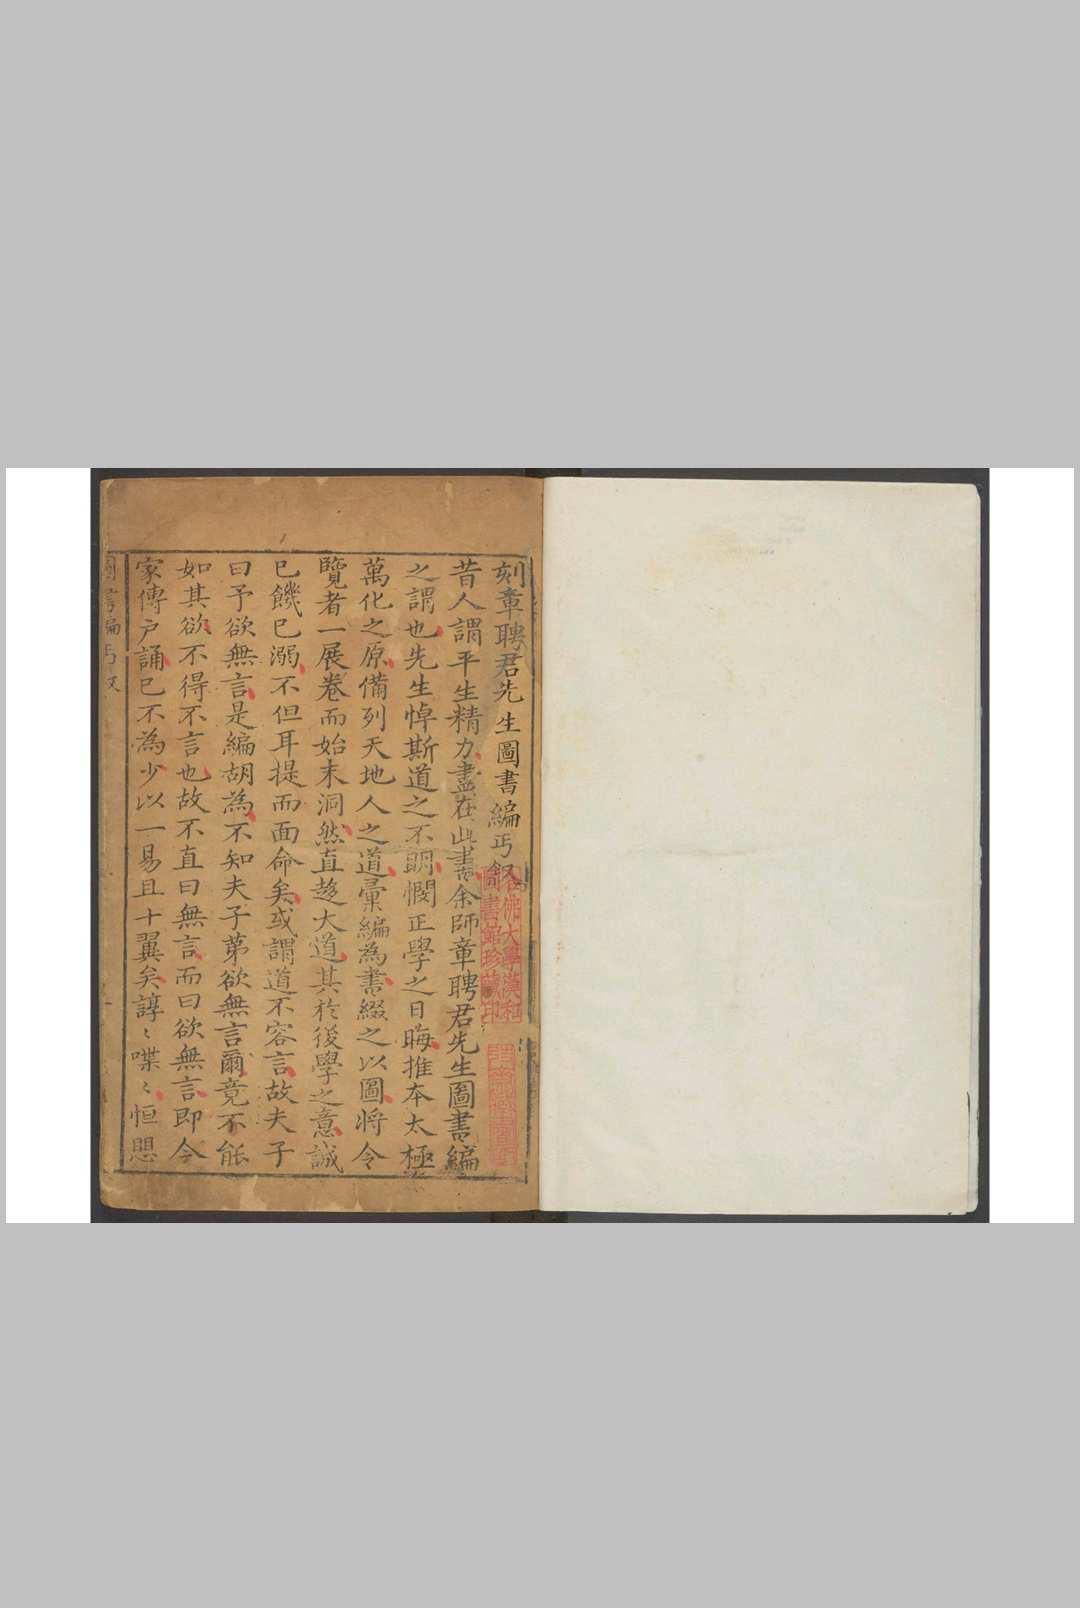 刻章聘君先生圖書編丐叙
昔人謂平生精力盡在此書余師章聘君先生圖書編
之謂也先生悼斯道之不明憫正學之日晦推本太極
萬化之原備列天地人之道彙編為書綴之以圖將令
覽者一展卷而始末洞然直趍大道其於後學之意誠
已饑已溺不但耳提而面命矣或謂道不容言故夫子
曰予欲無言是編胡為不知夫子苐欲無言爾竟不能
如其欲不得不言也故不直曰無言而曰欲無言即今
家傳户誦已不為少以一易且十翼矣諄〻喋〻恒愳
圖書編丐叙
哈佛大學漢和
圖書館珍藏印